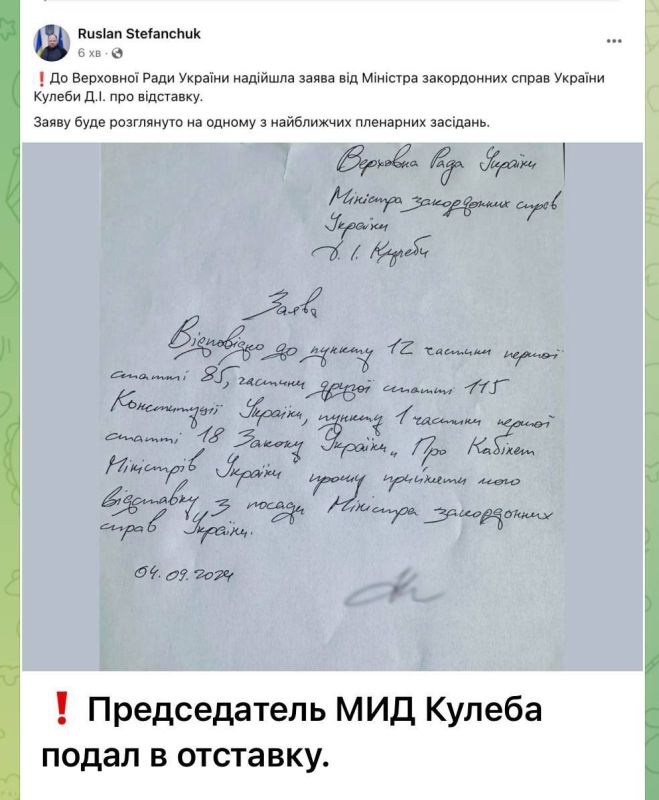 Ruslan Stefanchuk
6 хв ·
❗До Верховної Ради України надійшла заява від Міністра закордонних справ України
Кулеби Д.І. про відставку.
Заяву буде розглянуто на одному з найближчих пленарних засідань.
Верховна Рада України
Міністра закордонних справ
України
Д. І. Кулеби
Заява
Відповідно до пункту 12 частини першої
статті 85, частини другої статті 115
Конституції України, пункту 1 частини першої
статті 18 Закону України „Про Кабінет
Міністрів України" прошу прийняти мою
відставку з посади Міністра закордонних
справ України.
04.09.2024
❗ Председатель МИД Кулеба
подал в отставку.